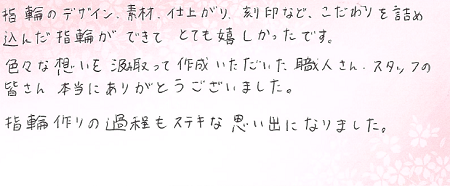 指輪のデザイン、素材、仕上がり、刻印など、こだわりを詰め
込んだ指輪ができて とても嬉しかったです。
色々な想いを汲取って作成いただいた 職人さん、スタッフの
皆さん 本当にありがとうございました。
指輪作りの過程もステキな思い出になりました。